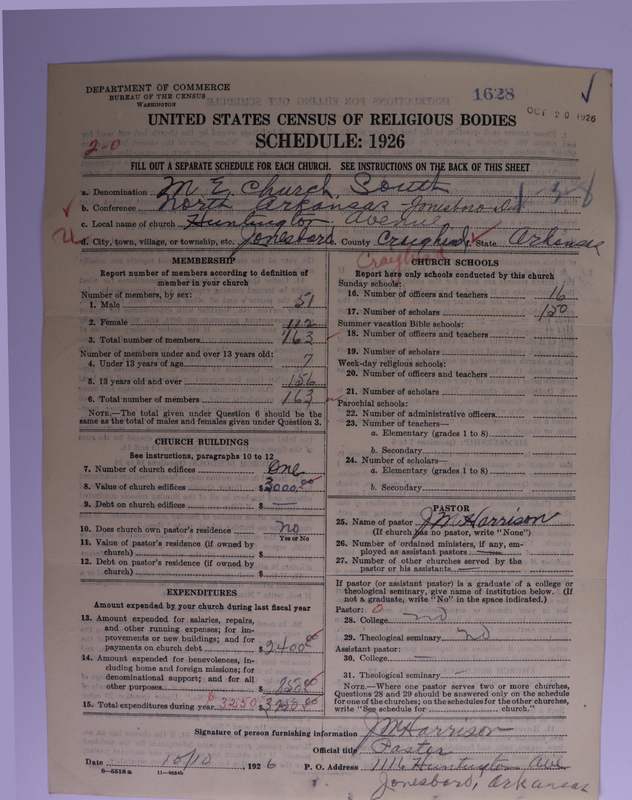 DEPARTMENT OF COMMERCE
BUREAU OF THE CENSUS
WASHINGTON
1628
OCT 20 1926
UNITED STATES CENSUS OF RELIGIOUS BODIES
SCHEDULE: 1926
2-0
FILL OUT A SEPARATE SCHEDULE FOR EACH CHURCH. SEE INSTRUCTIONS ON THE BACK OF THIS SHEET
a. Denomination M E Church, South
b. Conference North Arkansas - Jonesboro Dist 1-3-8
c. Local name of church Huntington Avenue
d. City, town, village, or township, etc. Jonesboro County Craighead State Arkansas
Craighead
MEMBERSHIP
Report number of members according to definition of
member in your church
Number of members, by sex:
1. Male 51
2. Female 112
3. Total number of members 163
Number of members under and over 13 years old:
4. Under 13 years of age 7
5. 13 years old and over 156
6. Total number of members 163
NOTE.—The total given under Question 6 should be the
same as the total of males and females given under Question 3.
CHURCH BUILDINGS
See instructions, paragraphs 10 to 12
7. Number of church edifices One
8. Value of church edifices $3000.00
9. Debt on church edifices $ —
10. Does church own pastor's residence No
Yes or No
11. Value of pastor's residence (if owned by
church) $
12. Debt on pastor's residence (if owned by
church) $
EXPENDITURES
Amount expended by your church during last fiscal year
13. Amount expended for salaries, repairs,
and other running expenses; for im-
provements or new buildings; and for
payments on church debt $2400.00
14. Amount expended for benevolences, in-
cluding home and foreign missions; for
denominational support; and for all
other purposes $
15. Total expenditures during year $3250 $
CHURCH SCHOOLS
Report here only schools conducted by this church
Sunday schools:
16. Number of officers and teachers 16
17. Number of scholars 150
Summer vacation Bible schools:
18. Number of officers and teachers
19. Number of scholars
Week-day religious schools:
20. Number of officers and teachers
21. Number of scholars
Parochial schools:
22. Number of administrative officers
23. Number of teachers—
a. Elementary (grades 1 to 8)
b. Secondary
24. Number of scholars—
a. Elementary (grades 1 to 8)
b. Secondary
PASTOR
25. Name of pastor J M Harrison
(If church has no pastor, write "None")
26. Number of ordained ministers, if any, em-
ployed as assistant pastors —
27. Number of other churches served by the
pastor or his assistants —
If pastor (or assistant pastor) is a graduate of a college or
theological seminary, give name of institution below. (If
not a graduate, write "No" in the space indicated.)
Pastor: 0
28. College no
29. Theological seminary no
Assistant pastor:
30. College —
31. Theological seminary —
NOTE.—Where one pastor serves two or more churches,
Questions 28 and 29 should be answered only on the schedule
for one of the churches; on the schedules for the other churches,
write "See schedule for church."
Signature of person furnishing information J M Harrison
Official title Pastor
Date 10/10, 1926 P. O. Address 1116 Huntington Ave
6—5518a 11—9054b
Jonesboro, Arkansas